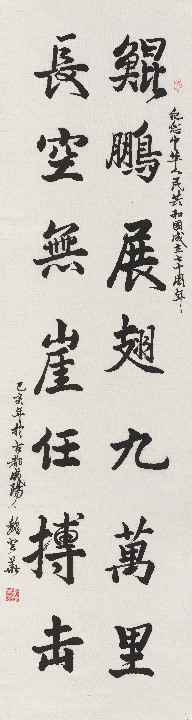 纪念中华人民共和国成立七十周年
鲲鹏展翅九萬里
長空無崖任搏击
己亥年於古都咸陽